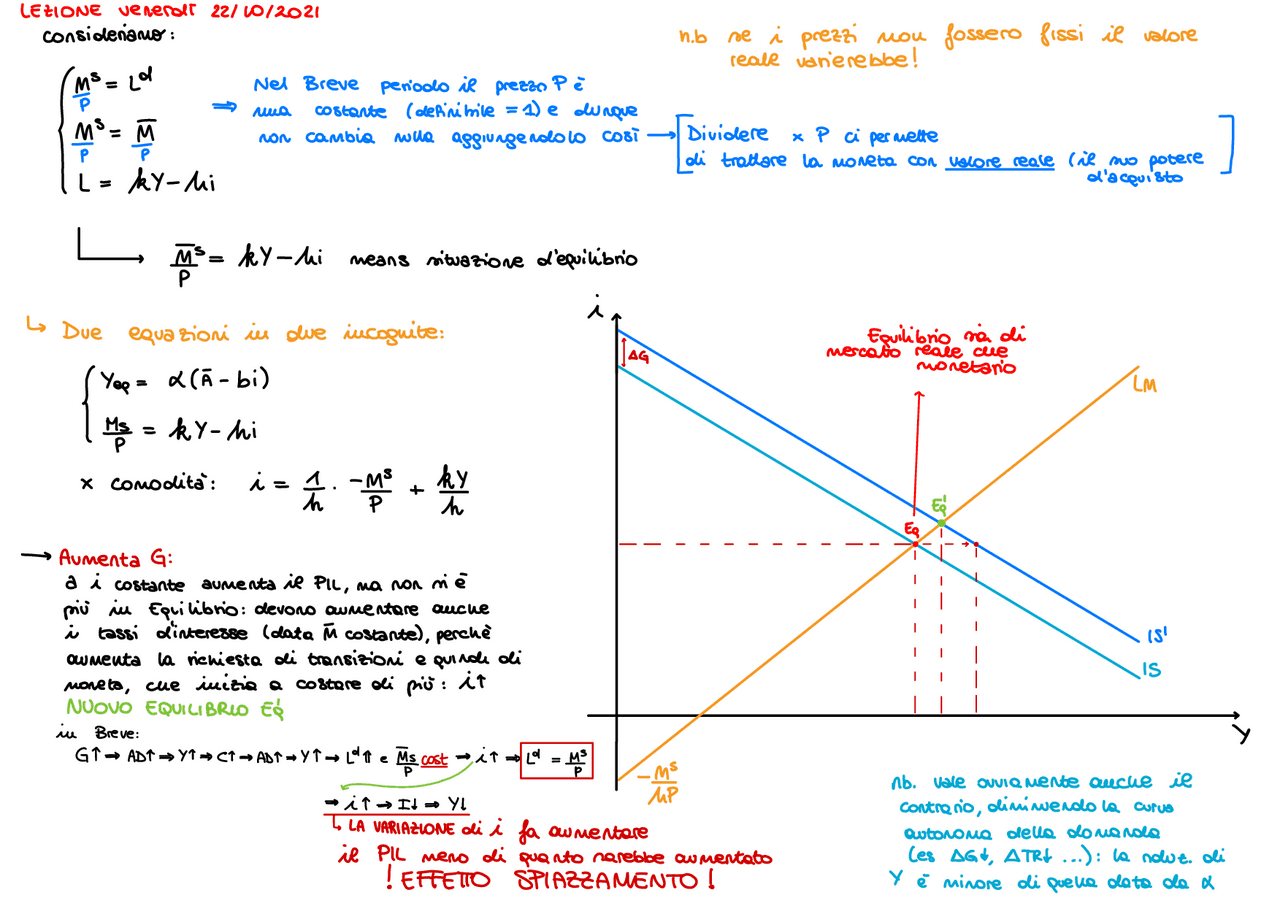 LEZIONE venerdì 22/10/2021
consideriamo:
n.b se i prezzi non fossero fissi il valore
reale varierebbe!
M^s/P = L^d
M^s/P = M̅/P
L = kY - hi
⇒ Nel Breve periodo il prezzo P è
una costante (definibile = 1) e dunque
non cambia nulla aggiungendolo così →
[Dividere x P ci permette
di trattare la moneta con valore reale (il suo potere
d'acquisto]
M̅^s/P = kY - hi means situazione d'equilibrio
↳ Due equazioni in due incognite:
Yeq = α(A̅ - bi)
Ms/P = kY - hi
x comodità: i = 1/h · -M^s/P + kY/h
→ Aumenta G:
a i costante aumenta il PIL, ma non si è
più in Equilibrio: devono aumentare anche
i tassi d'interesse (data M̅ costante), perchè
aumenta la richiesta di transizioni e quindi di
moneta, che inizia a costare di più: i↑
NUOVO EQUILIBRIO EQ'
in Breve:
G↑ → AD↑ → Y↑ → C↑ → AD↑ → Y↑ → L^d⇑ e M̅s/P cost → i↑ → L^d = M^s/P
→ i↑ → I↓ → Y↓
↳ LA VARIAZIONE di i fa aumentare
il PIL meno di quanto sarebbe aumentato
! EFFETTO SPIAZZAMENTO !
i
ΔG
Equilibrio sia di
mercato reale che
monetario
LM
EQ'
EQ
IS'
IS
Y
-M^s/hP
nb. vale ovviamente anche il
contrario, diminuendo la curva
autonoma della domanda
(es ΔG↓, ΔTR↓ ...): la riduz. di
Y è minore di quella data da α